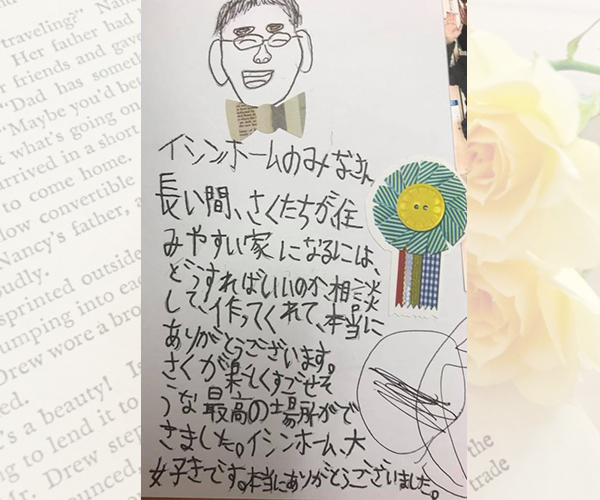 traveling?"
Her father had
friends and gave
"Dad has
"Maybe you'd
what's going on
in a short
to come home.
low convertible
Nancy's father, a
sprinted outside
into
Drew wore a
a beauty!
to lend it to
Drew
イシンホームのみなさん
長い間、さくたちが住
みやすい家になるには、
どうすればいいのか相談
して、作ってくれて、本当に
ありがとうございます。
さくが楽しくすごせそ
うな最高の場所がで
きました。イシンホーム、大
女子きです。本当にありがとうございました。
the
trade